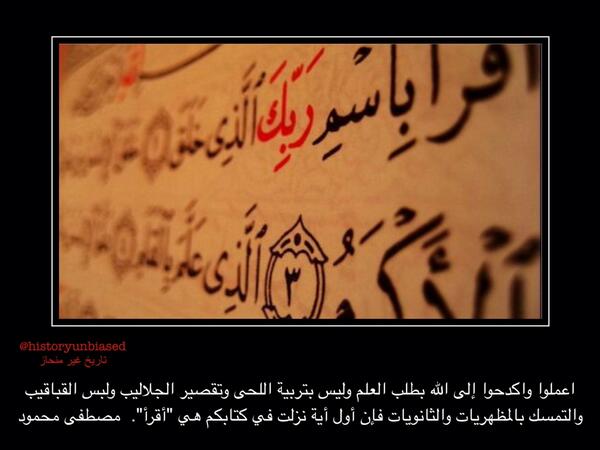 ٱقْرَأْ بِٱسْمِ رَبِّكَ ٱلَّذِى خَلَقَ
ٱلْأَكْرَمُ ٣ ٱلَّذِى عَلَّمَ بِٱلْقَلَمِ
@historyunbiased
تاريخ غير منحاز
اعملوا واكدحوا إلى الله بطلب العلم وليس بتربية اللحى وتقصير الجلاليب ولبس القباقيب
والتمسك بالمظهريات والثانويات فإن أول أية نزلت في كتابكم هي "أقرأ". مصطفى محمود